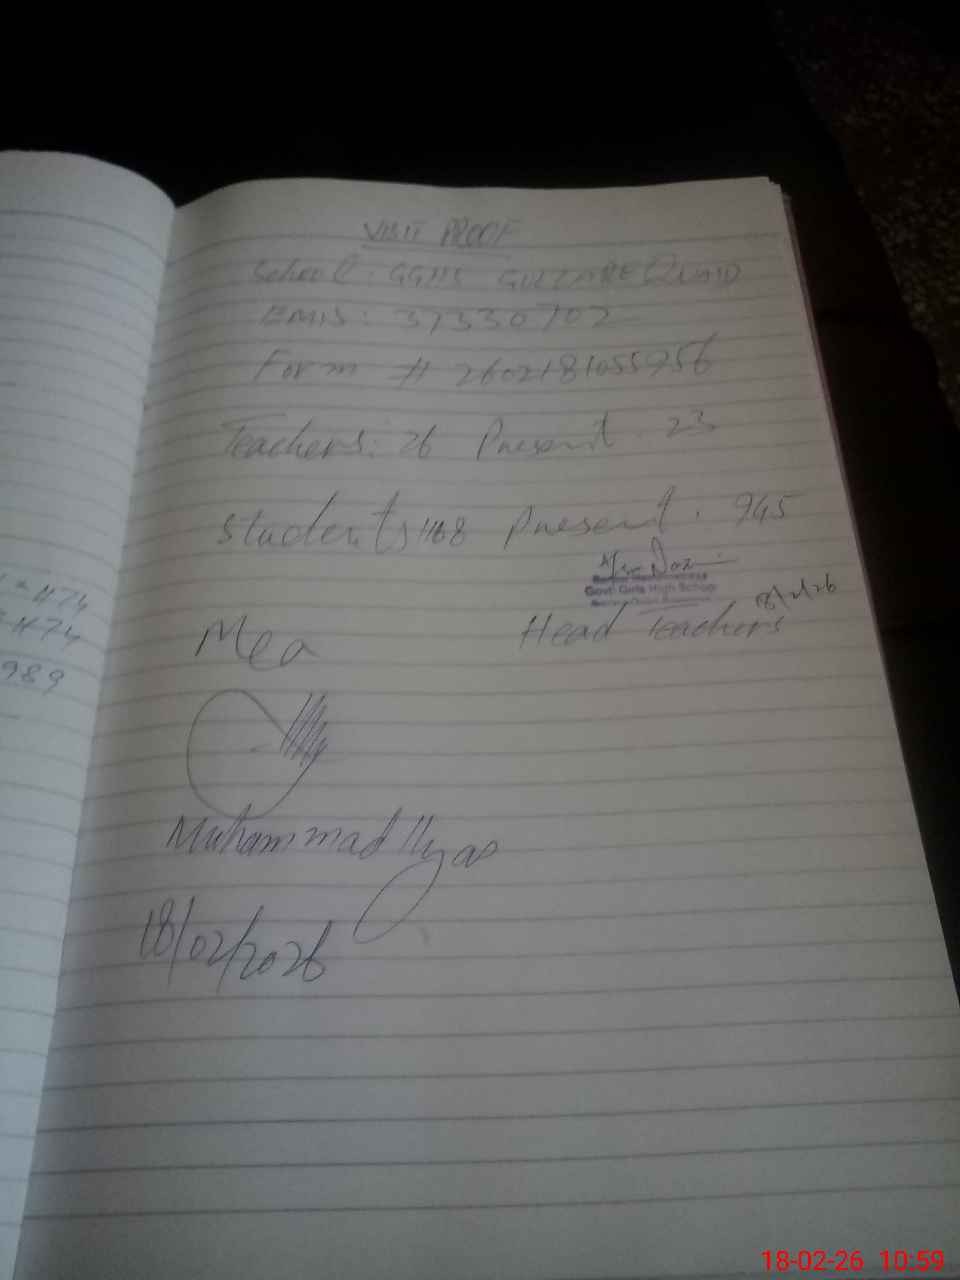 = 474
474
989
VISIT PROOF
School: GGHS GULZARE QUAID
EMIS: 37330702
Form # 2602181055956
Teachers: 26 Present 23
Students 1168 Present: 945
Govt Girls High School
18/2/26
Head Teachers
Mea
Muhammad Ilyas
18/02/2026
18-02-26 10:59